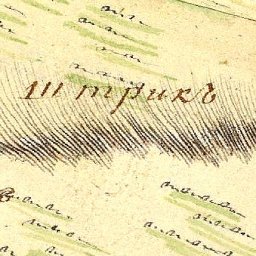 штрикъ